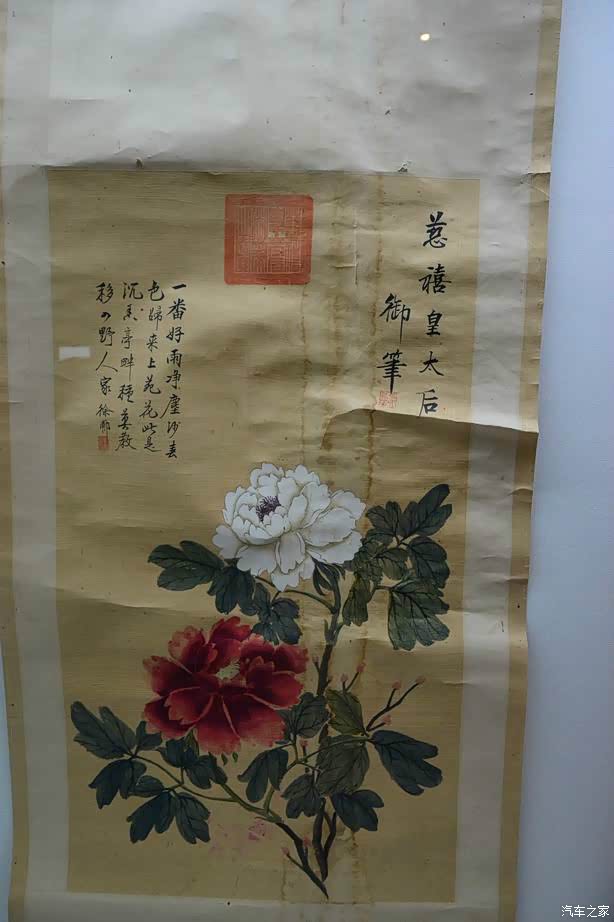 慈禧皇太后
御筆
一番好雨净塵沙春
色歸来上苑花此是
沉香亭畔種莫教
移入野人家 徐郙
汽车之家